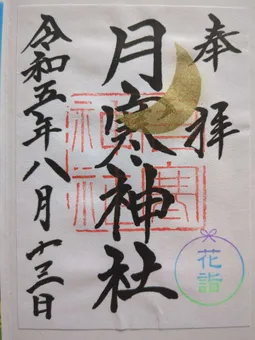 奉拝
月寒神社
令和五年八月十三日
花詣